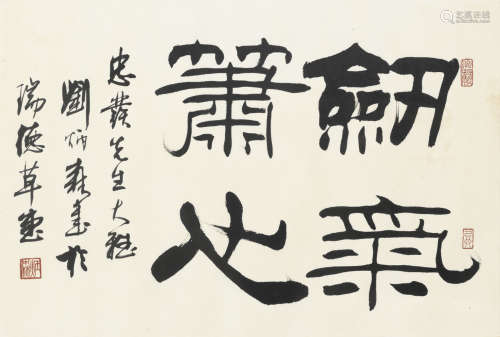 劒氣
簫心
忠發先生大雅
劉炳森書於
瑞德草堂